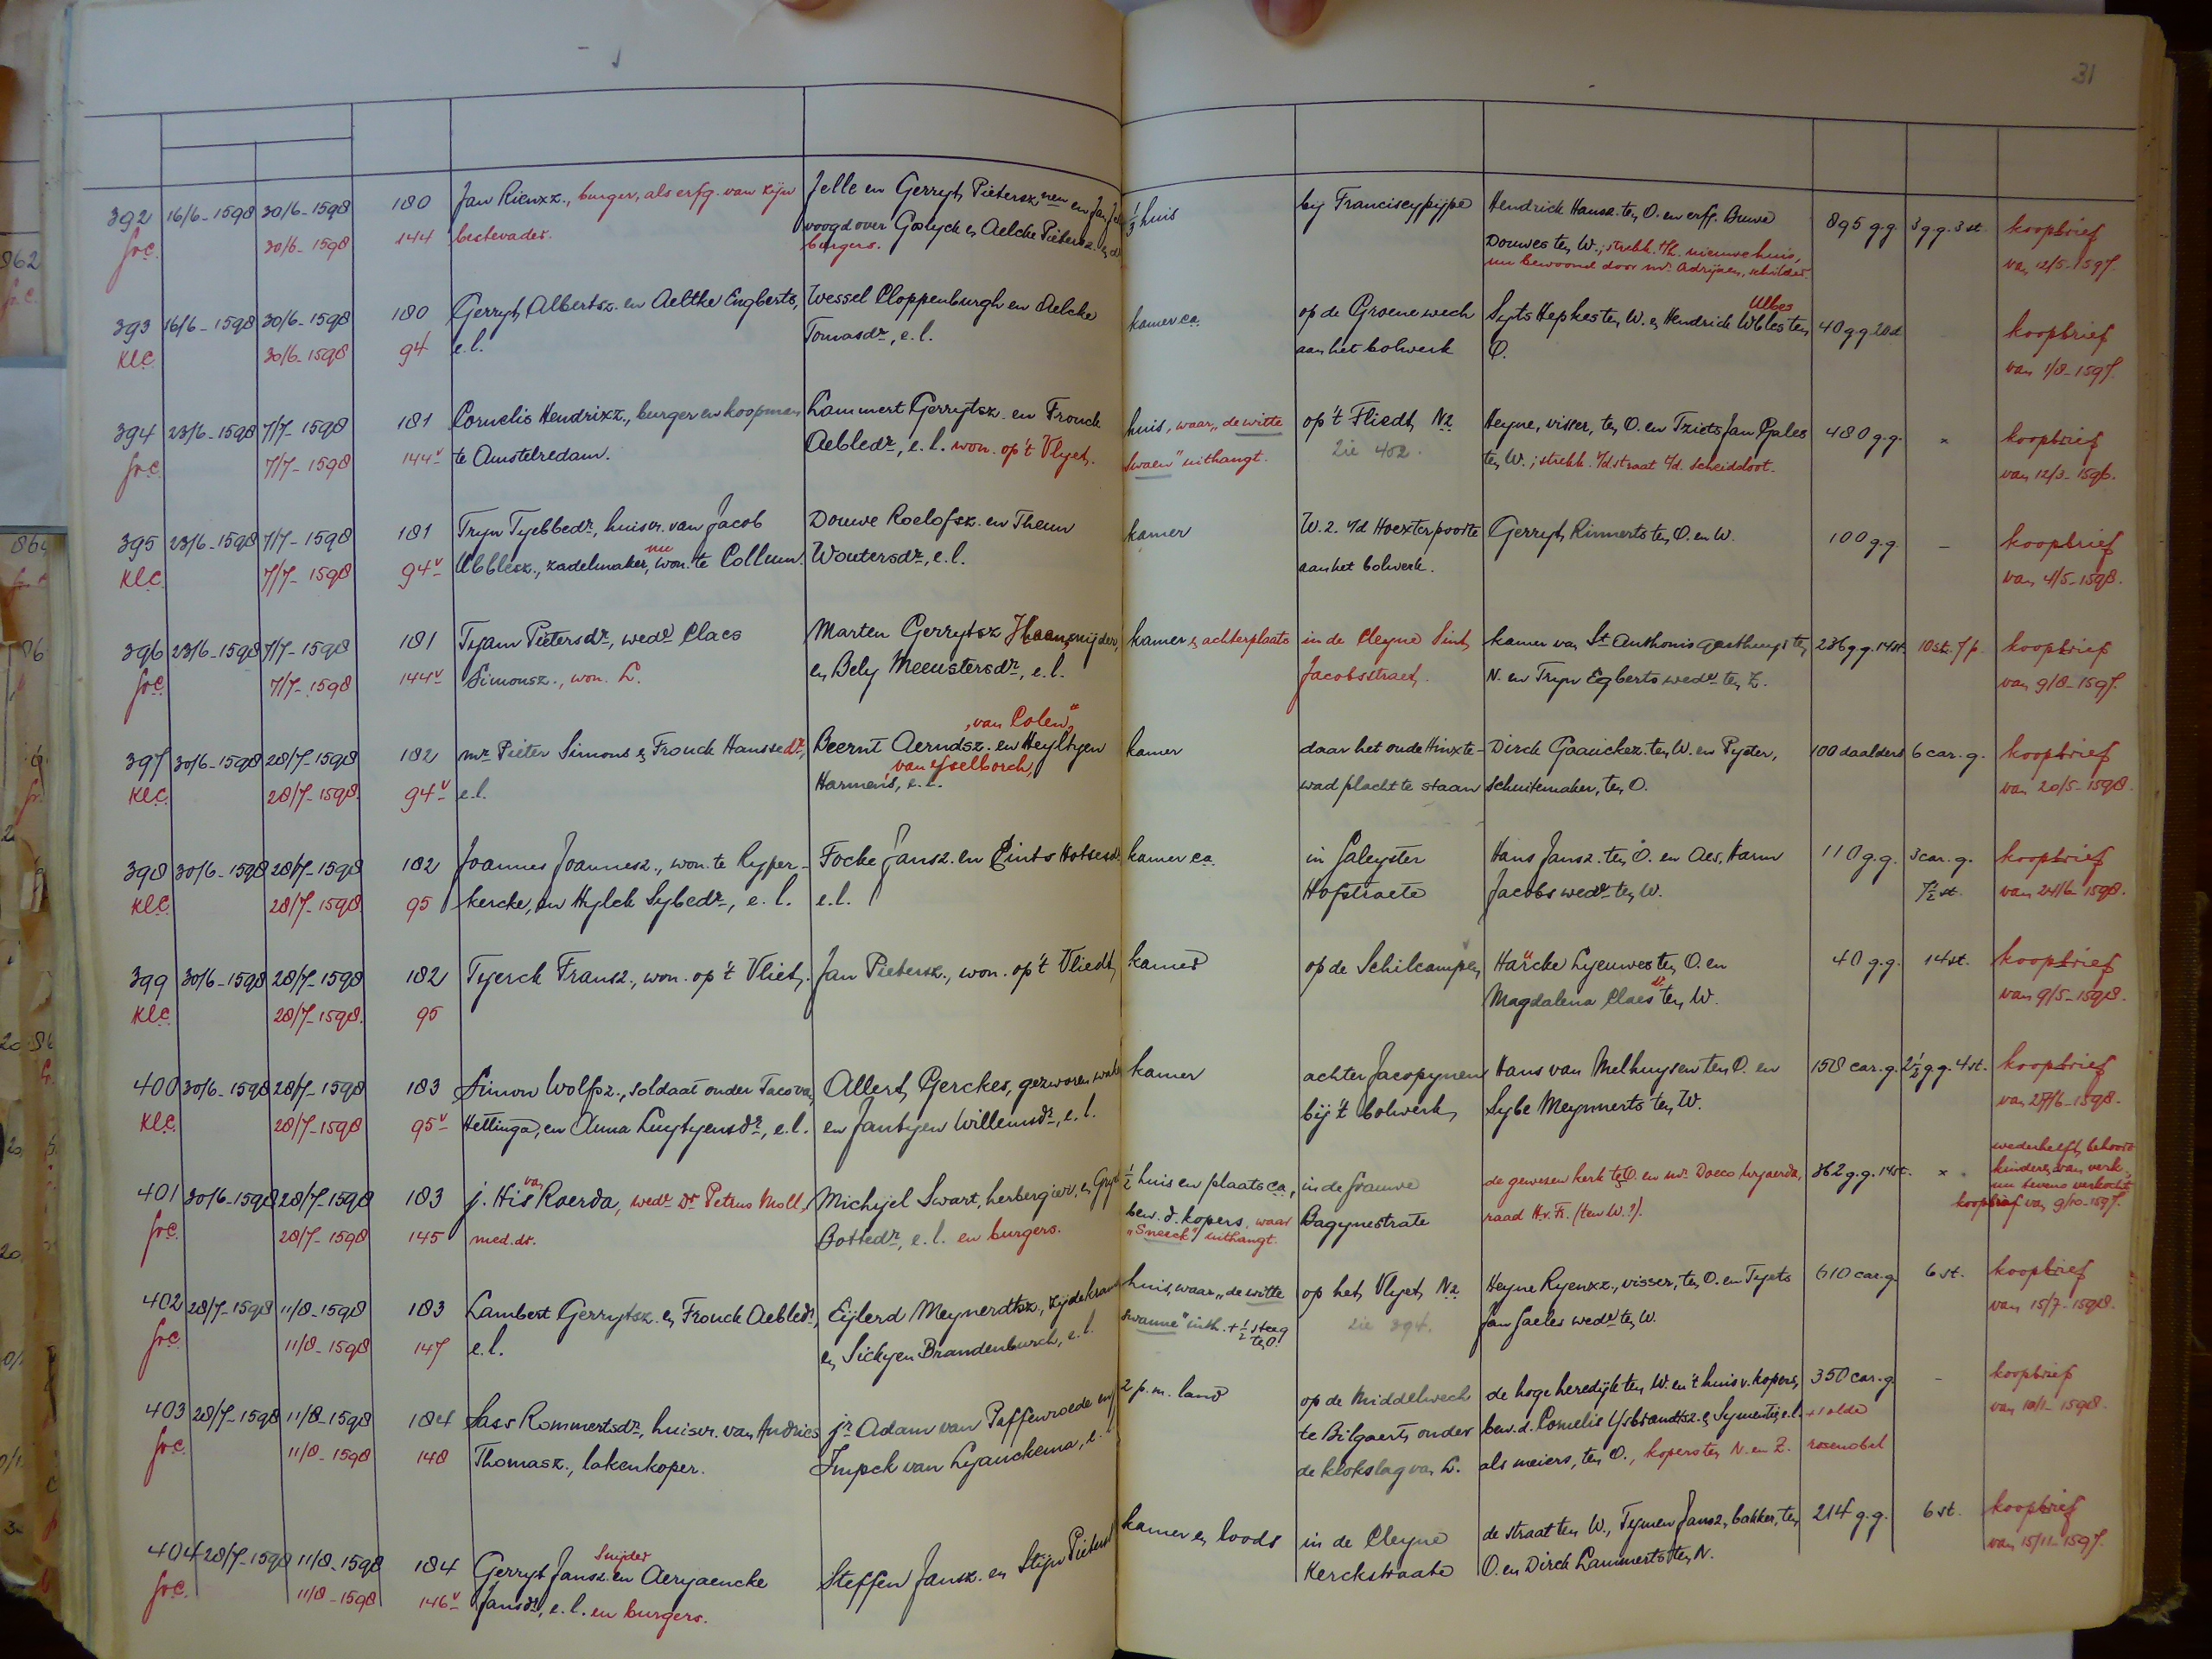 31
392 16/6-1598 30/6-1598 180 Jan Rienxz., burger, als erfg. van zijn Jelle en Gerryt Pietersz, nem en Jan ⅓ huis bij Franciscypijpe Hendrick Hansz. ten O. en erfg. Buwe 895 g.g. 3 g.g. 3 st. koopbrief
fr.c. 30/6-1598 144 bestevader. voogd over Goslyck en Aelcke Pietersz. burgers. Douwes ten W.; strekk. t/h. nieuwe huis, van 12/5-1597.
nu bewoond door mr. Adrijaen, schilder
393 16/6-1598 30/6-1598 180 Gerryt Albertsz. en Aeltke Engberts, Wessel Cloppenburgh en Aelcke kamer ca. op de Groene wech Syts Hepkes ten W. en Hendrick Wbles ten 40 g.g. 20 d koopbrief
Ulbes
Kl.c. 30/6-1598 94 e.l. Tomasdr., e.l. aan het bolwerk O. van 1/8-1597.
394 23/6-1598 7/7-1598 181 Cornelis Hendrixz., burger en koopman Lammert Gerrytsz. en Frouck huis, waar „de witte op 't Fliedt Nz Heyne, visser, ten O. en Tziets Jan Gales 480 g.g. x koopbrief
fr.c. 7/7-1598 144v te Amstelredam. Aebledr., e.l. won. op 't Vlyet. Swaen" uithangt. zie 402. ten W.; strekk. v/d straat t/d. scheidsloot. van 12/3-1596.
395 23/6-1598 7/7-1598 181 Tryn Tyebbedr., huisvr. van Jacob Douwe Roelofsz. en Theun kamer W.z. v/d Hoexterpoorte Gerryt Rinnerts ten O. en W. 100 g.g. – koopbrief
Kl.c. 7/7-1598 94v Ubblesz., zadelmaker, nu won. te Collum. Woutersdr., e.l. aan het bolwerk. van 4/5-1598.
396 23/6-1598 7/7-1598 181 Tyam Pietersdr., wede. Claes Marten Gerrytsz snijder, kamer en achterplaats in de Cleyne Sint kamer van St. Anthonis gasthuys ten 236 g.g. 14 st. 10 st. 7 p. koopbrief
fr.c. 7/7-1598 144v Simonsz., won. L. en Bely Meeustersdr., e.l. Jacobsstraet. N. en Tryn Egberts wede. ten Z. van 9/8-1597.
„van Colen"
397 30/6-1598 28/7-1598 182 mr. Pieter Simons en Frouck Hanssedr., Beernt Aerndsz. en Heyltyen kamer daar het oude Hinxte- Dirck Gaauckez. ten W. en Pyter, 100 daalders 6 car. g. koopbrief
van Ysselborch,
Kl.c. 28/7-1598 94v e.l. Harmens, e.l. wad placht te staan schuitemaker, ten O. van 20/5-1598.
398 30/6-1598 28/7-1598 182 Joannes Joannesz., won. te Ryper- Focke Jansz. en Eints Hotsesdr. kamer ca. in Jaleyster Hans Jansz. ten O. en Aes, Harm 110 g.g. 3 car. g. koopbrief
Kl.c. 28/7-1598 95 kercke, en Hylck Sybedr., e.l. e.l. Hofstraete Jacobs wede. ten W. 7½ st. van 24/6-1598.
399 30/6-1598 28/7-1598 182 Tyerck Fransz., won. op 't Vliet. Jan Pietersz., won. op 't Vliedt kamer op de Schilcampen Harcke Lyeuwes ten O. en 40 g.g. 14 st. koopbrief
Kl.c. 28/7-1598. 95 Magdalena Claesdr. ten W. van 9/5-1598.
400 30/6-1598 28/7-1598 183 Simon Wolfsz., soldaat onder Taco van Allert Gerckes, gezworen kamer achter Jacopynen Hans van Melhuysen ten O. en 158 car. g. 2½ g.g. 4 st. koopbrief
Kl.c. 28/7-1598 95v Hettinga, en Anna Luytyensdr., e.l. en Jantyen Willemsdr., e.l. bij 't bolwerk Sybe Meynnerts ten W. van 27/6-1598.
wederhelft behoord
401 30/6-1598 28/7-1598 183 j. His van Roerda, wede. Dr. Petrus Moll, Michyel Swart, herbergier, en ½ huis en plaats ca., in de Jrauwe de gewesen kerk ten O. en mr. Doeco 362 g.g. 14 st. x kinderen van verk.,
nu tevens verkocht
fr.c. 28/7-1598 145 med. dr. Bottedr., e.l. en burgers. bew. d. kopers, waar Bagynestrate raad H.v.Fr. (ten W.?). koopbrief van 9/10-1597.
„Sneeck" uithangt.
402 28/7-1598 11/8-1598 183 Lambert Gerrytsz. en Frouck Aebledr., Eijlerd Meynerdtsz., zijdekramer huis, waar „de witte op het Vlyet Nz Heyne Ryenxz., visser, ten O. en Tyets 610 car. g. 6 st. koopbrief
fr.c. 11/8-1598 147 e.l. en Sickyen Brandenburch, e.l. swanne" uith. + ½ steeg ten O. zie 394. Jan Jaeles wede. ten W. van 15/7-1598.
403 28/7-1598 11/8-1598 184 Sass Rommertsdr., huisvr. van Andries jr. Adam van Paffenroede en 2 p.m. land op de Middelwech de hoge heredijk ten W. en 't huis v. kopers, 350 car. g. – koopbrief
fr.c. 11/8-1598 148 Thomasz., lakenkoper. Impck van Lyauckema, e.l. te Bilgaert onder bew. d. Cornelis Ysbrandtsz. en Symentie, e.l. +1 olde van 10/1-1598.
de klokslag van L. als meiers, ten O., kopers ten N. en Z. rosenobel
404 28/7-1598 11/8-1598 184 Gerryt Jansz. Snijder en Aeryaencke Steffen Jansz. en Stijn kamer en loods in de Cleyne de straat ten W., Tymen Jansz, bakker, ten 214 g.g. 6 st. koopbrief
fr.c. 11/8-1598 146v Jansdr., e.l. en burgers. Kerckstraate O. en Dirck Lammerts ten N. van 15/11-1597.